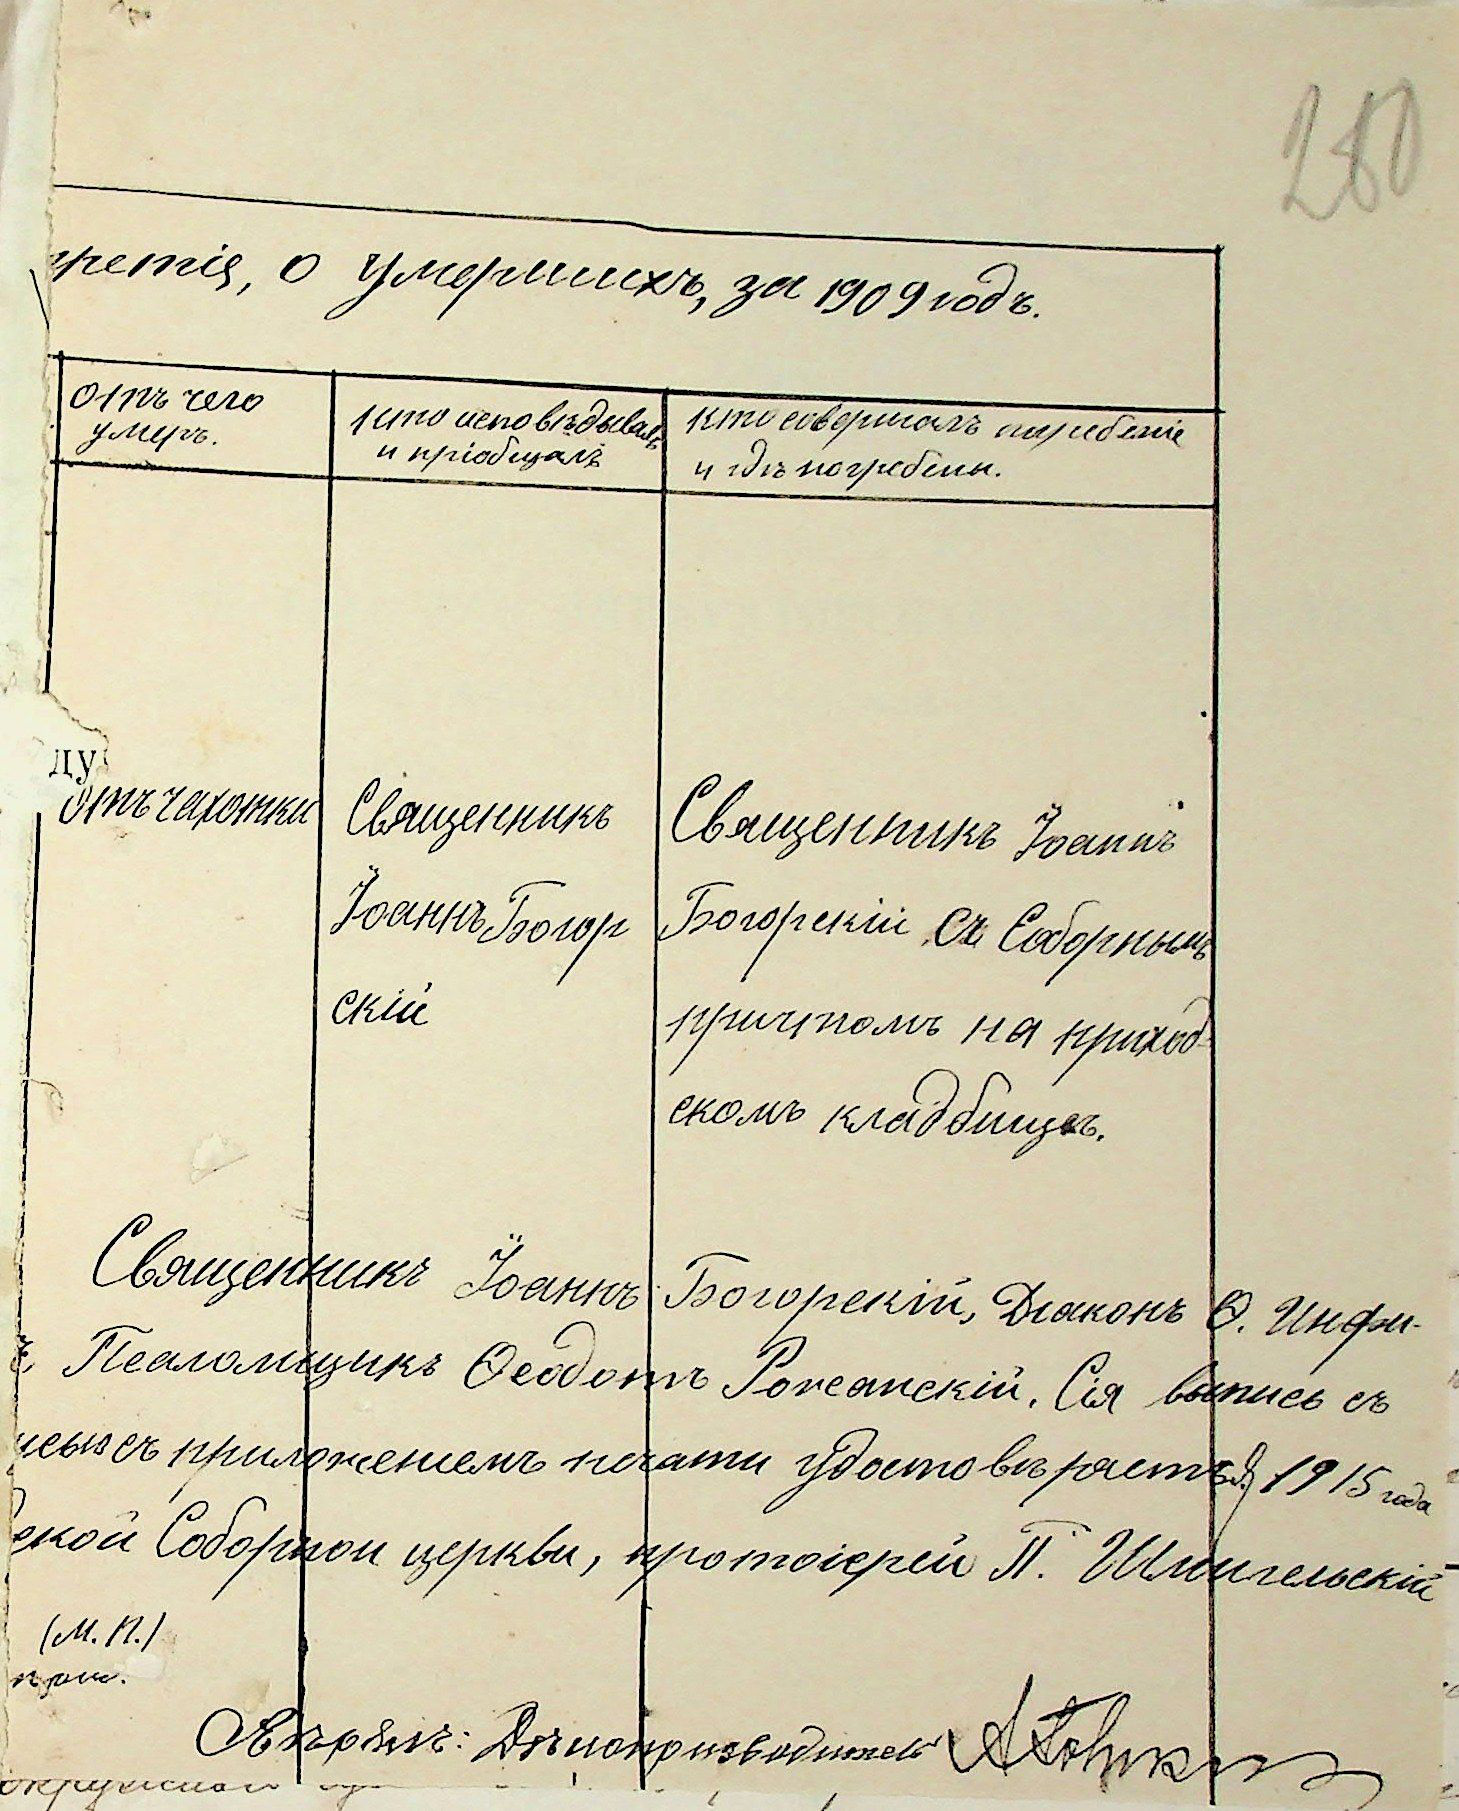 280
третія, о умершихъ, за 1909 годъ.
отъ чего
умеръ.
кто исповѣдывалъ
и пріобщалъ
кто совершалъ погребеніе
и гдѣ погребены.
ду
отъ чахотки
Священникъ
Іоаннъ Богор
скій
Священникъ Іоаннъ
Богорскій съ Соборнымъ
причтомъ на приход-
скомъ кладбищѣ.
Священникъ Іоаннъ Богорскій, Діаконъ Ѳ. Инфи-
Псаломщикъ Ѳеодотъ Рожанскій. Сія выпись съ
съ приложеніемъ печати удостовѣряетъ 1915 года
ской Соборной церкви, протоіерей П. Шмигельскій
(М. П.)
Свѣрялъ: Дѣлопроизводитель